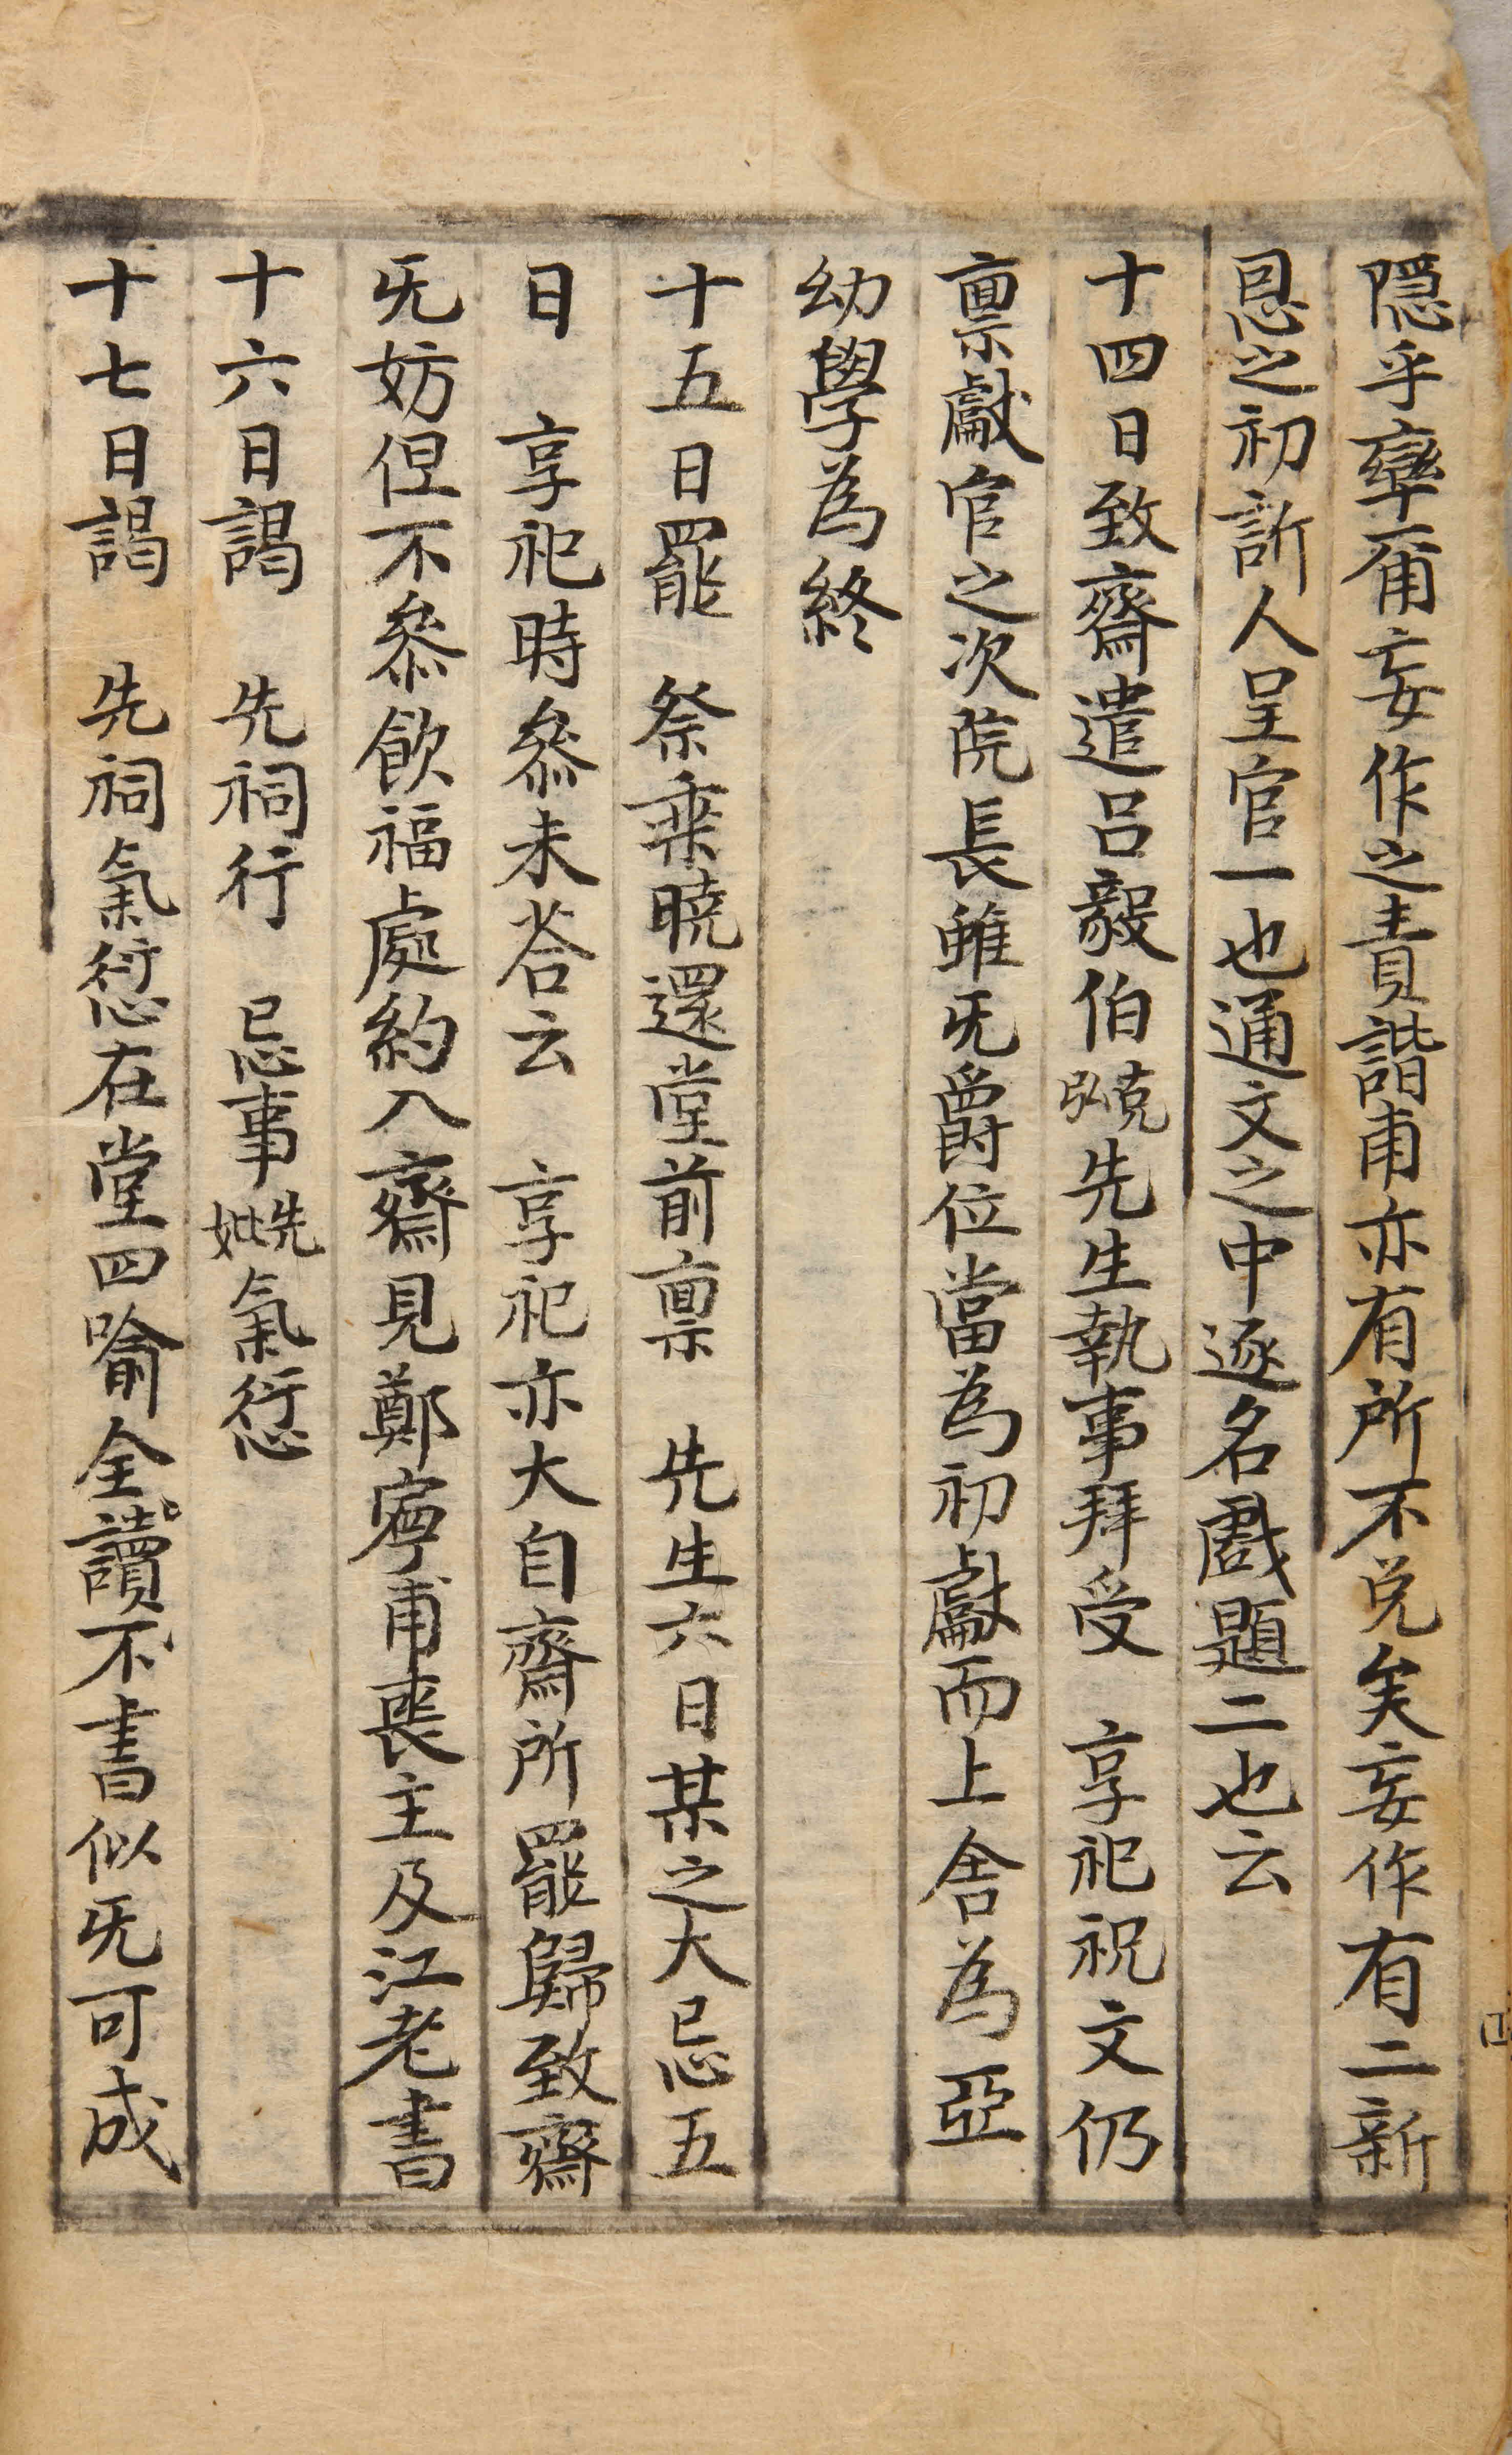 隱乎率爾妄作之責諧甫亦有所不免矣妄作有二新
恩之初訴人呈官一也通文之中逐名戱題二也云
十四日致齋遣呂毅伯弘克先生執事拜受 享祀祝文仍
禀獻官之次院長雖旡爵位當為初獻而上舍為亞
幼學為終
十五日罷 祭乘曉還堂前禀 先生六日某之大忌五
日 享祀時叅未答云 享祀亦大自齋所罷歸致齋
旡妨但不叅飮福處約入齋見鄭寧甫喪主及江老書
十六日謁 先祠行 忌事先妣氣愆
十七日謁 先祠氣愆在堂四喩全讀不書似旡可成